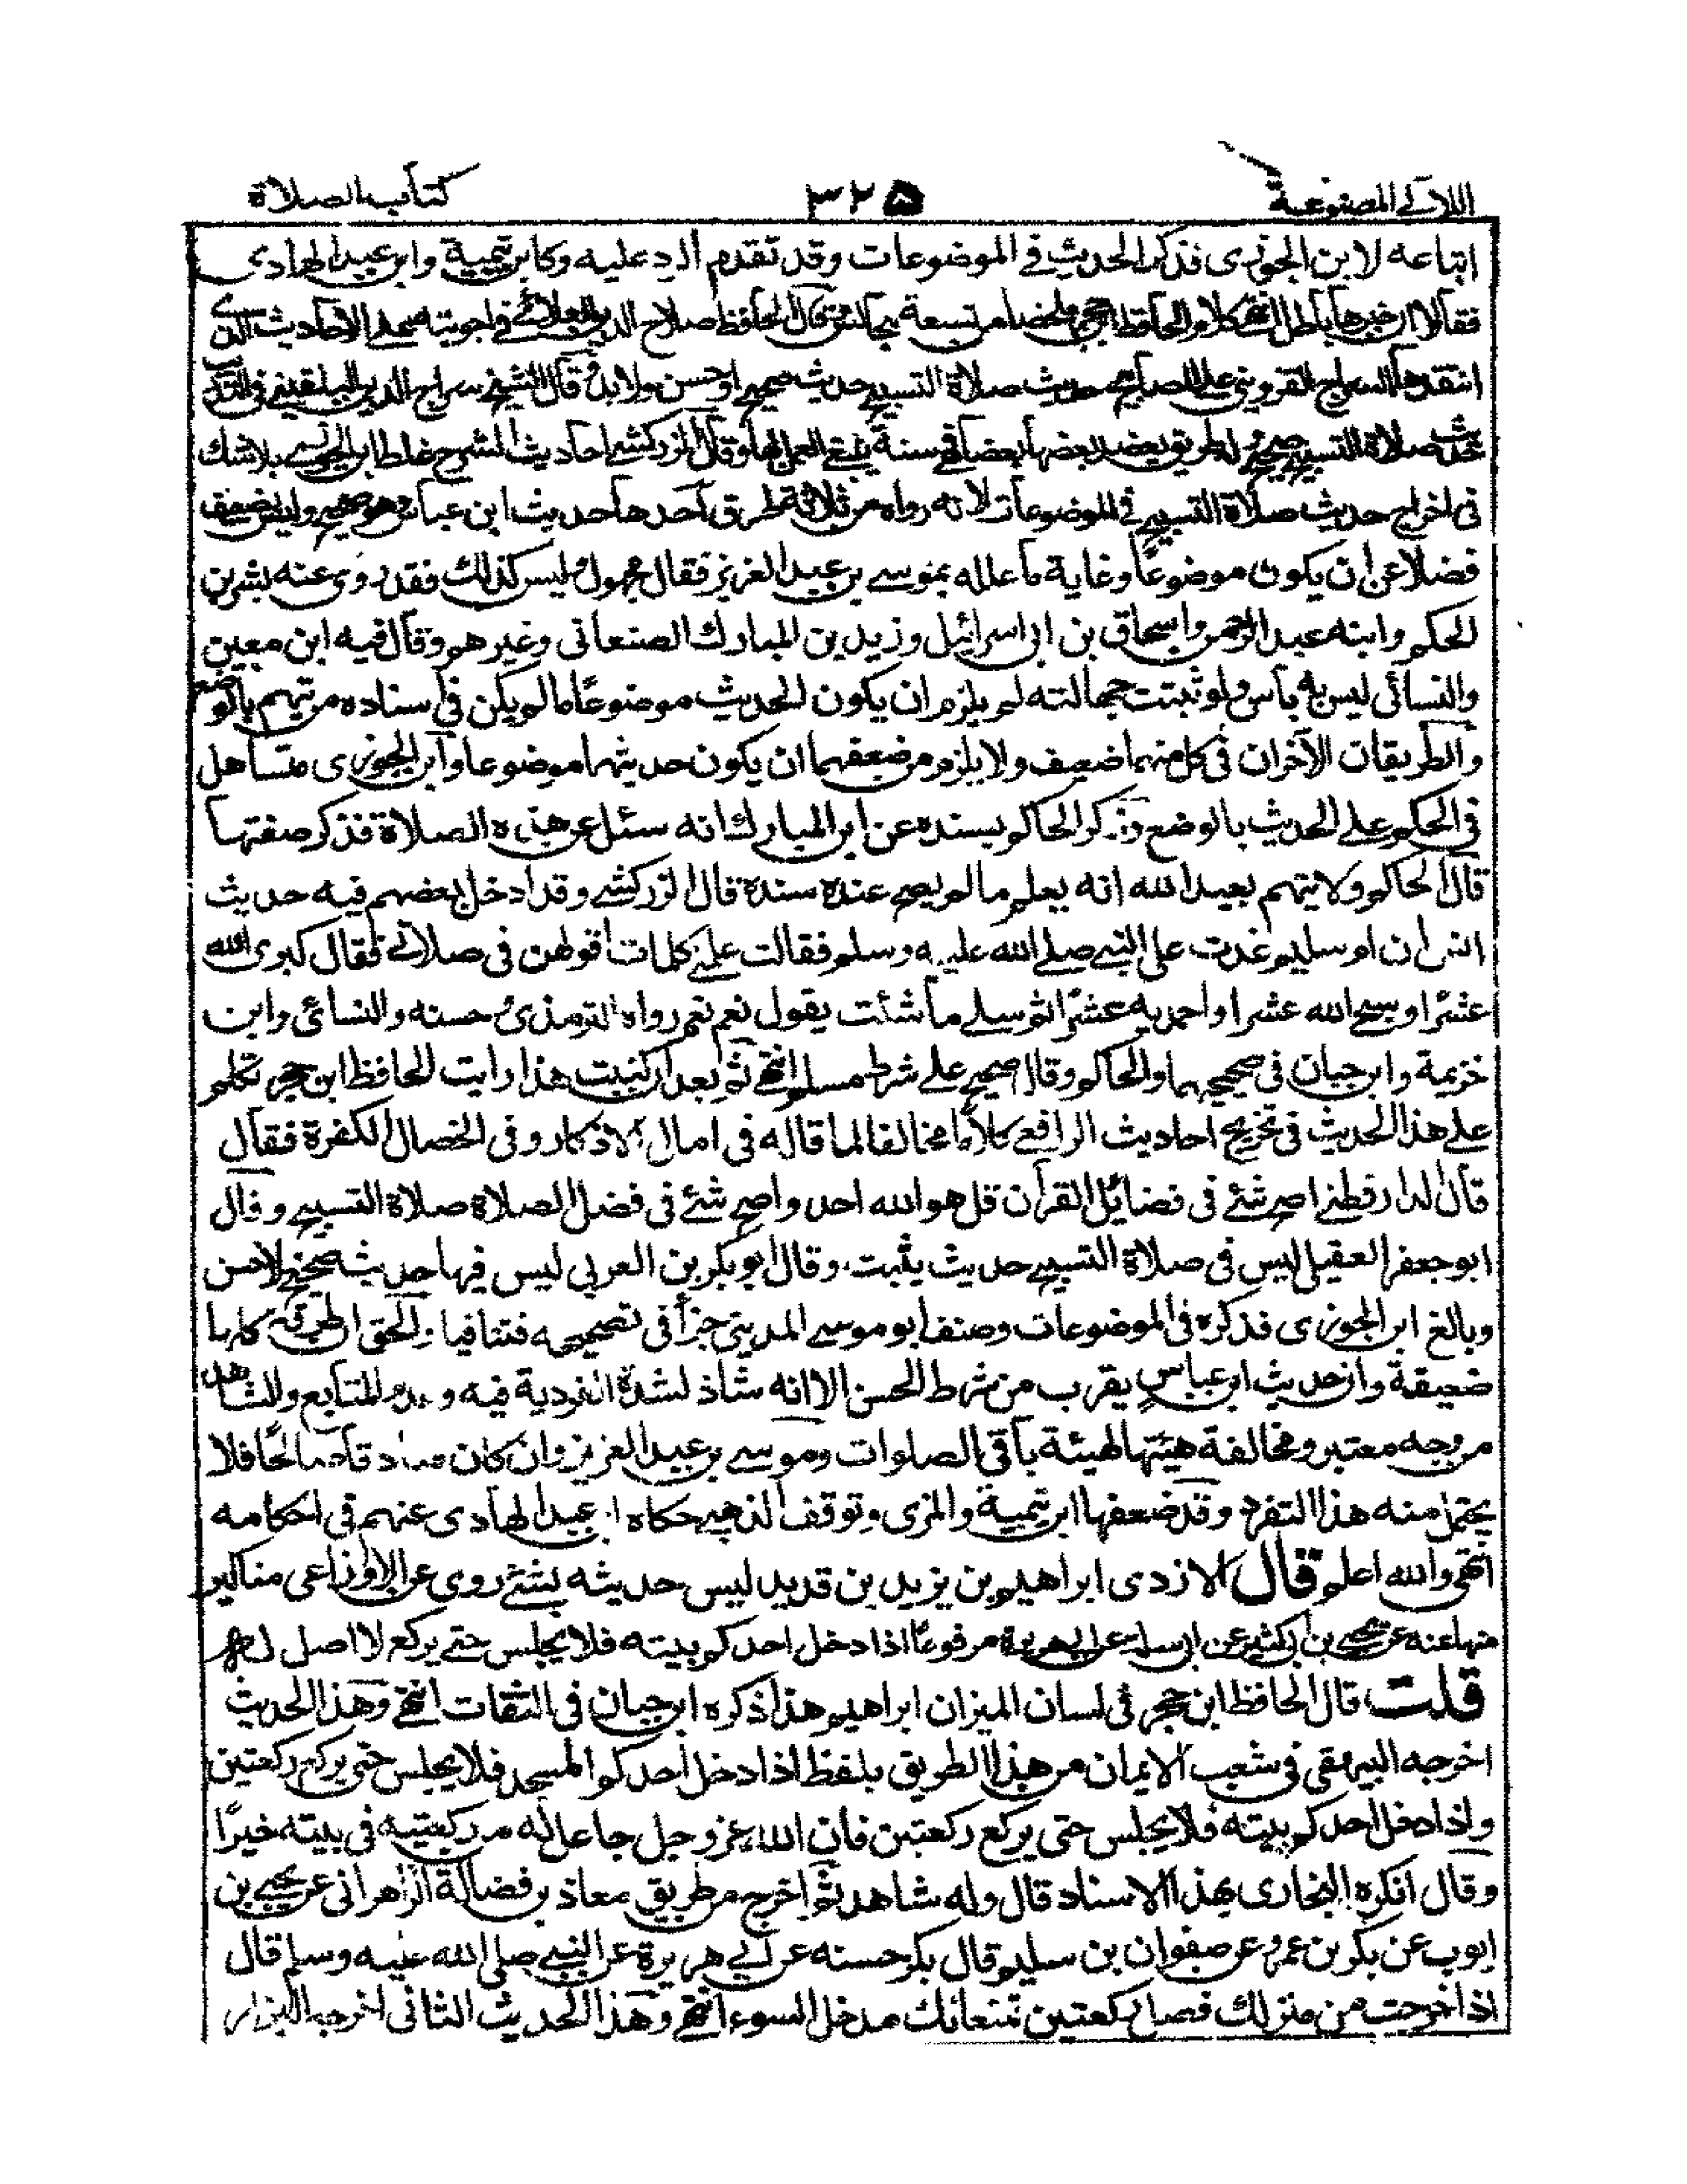 اللآلى المصنوعة
٣٢٥
كتاب الصلاة
اتباعه لابن الجوزى فذكر الحديث فى الموضوعات وقد تقدم الرد عليه وكابن تيمية وابن عبد الهادى
فقالا ان خبرها باطل انتهى كلام الحافظ ابن حجر ملخصا من تسعة مجالس وقال الحافظ صلاح الدين العلائى فى اجوبته على الاحاديث التى
انتقدها السراج القزوينى على المصابيح حديث صلاة التسبيح حديث صحيح او حسن ولا بد وقال الشيخ سراج الدين البلقينى فى التدريب
حديث صلاة التسبيح صحيح وله طرق يعضد بعضها بعضا فهى سنة ينبغى العمل بها وقال الزركشى احاديث الشرح غلط ابن الجوزى بلا شك
فى اخراج حديث صلاة التسبيح فى الموضوعات لانه رواه من ثلاثة طرق احدها حديث ابن عباس وهو صحيح وليس ضعيف
فضلا عن ان يكون موضوعًا وغاية ما علله بموسى بن عبد العزيز فقال مجهول وليس كذلك فقد روى عنه بشر بن
الحكم وابنه عبد الرحمن واسحاق بن ابى اسرائيل وزيد بن المبارك الصنعانى وغيرهم وقال فيه ابن معين
والنسائى ليس به بأس ولو ثبتت جهالته لم يلزم ان يكون الحديث موضوعًا ما لم يكن فى اسناده من يتهم بالوضع
والطريقان الآخران فى كل منهما ضعيف ولا يلزم من ضعفهما ان يكون حديثهما موضوعا وابن الجوزى متساهل
فى الحكم على الحديث بالوضع وذكر الحاكم بسنده عن ابن المبارك انه سئل عن هذه الصلاة فذكر صفتها
قال الحاكم ولا يتهم بعبد الله انه يعلم ما لم يصح عنده سنده قال الزركشى وقد ادخل بعضهم فيه حديث
انس ان ام سليم غدت على النبى صلى الله عليه وسلم فقالت علمنى كلمات اقولهن فى صلاتى فقال كبرى الله
عشرًا وسبحى الله عشرا واحمديه عشرًا ثم سلى ما شئت يقول نعم نعم رواه الترمذى وحسنه والنسائى وابن
خزيمة وابن حبان فى صحيحيهما والحاكم وقال صحيح على شرط مسلم انتهى ثم بعد ان كتبت هذا رايت الحافظ ابن حجر تكلم
على هذا الحديث فى تخريج احاديث الرافعى كلامًا مخالفا لما قاله فى امالى الاذكار وفى الخصال المكفرة فقال
قال الدارقطنى اصح شئ فى فضائل القرآن قل هو الله احد واصح شئ فى فضل الصلاة صلاة التسبيح وقال
ابو جعفر العقيلى ليس فى صلاة التسبيح حديث يثبت وقال ابو بكر بن العربى ليس فيها حديث صحيح ولا حسن
وبالغ ابن الجوزى فذكره فى الموضوعات وصنف ابو موسى المدينى جزأ فى تصحيحه فتنافيا والحق ان طرقه كلها
ضعيفة وان حديث ابن عباس يقرب من شرط الحسن الا انه شاذ لشدة الفردية فيه وعدم المتابع والشاهد
من وجه معتبر ومخالفة هيئتها لهيئة باقى الصلوات وموسى بن عبد العزيز وان كان صادقا صالحًا فلا
يحتمل منه هذا التفرد وقد ضعفها ابن تيمية والمزى وتوقف الذهبى حكاه ابن عبد الهادى عنهم فى احكامه
انتهى والله اعلم قال الازدى ابراهيم بن يزيد بن قديد ليس حديثه بشئ روى عن الاوزاعى مناكير
منها عنه عن يحيى بن ابى كثير عن ابى سلمة عن ابى هريرة مرفوعًا اذا دخل احدكم بيته فلا يجلس حتى يركع لا اصل له
قلت قال الحافظ ابن حجر فى لسان الميزان ابراهيم هذا ذكره ابن حبان فى الثقات انتهى وهذا الحديث
اخرجه البيهقى فى شعب الايمان من هذا الطريق بلفظ اذا دخل احدكم المسجد فلا يجلس حتى يركع ركعتين
واذا دخل احدكم بيته فلا يجلس حتى يركع ركعتين فان الله عز وجل جاعل له من ركعتيه فى بيته خيرًا
وقال انكره البخارى بهذا الاسناد قال وله شاهد ثم اخرج من طريق معاذ بن فضالة الزهرانى عن يحيى بن
ايوب عن بكر بن عمرو عن صفوان بن سليم قال بكر حسبته عن ابى هريرة عن النبى صلى الله عليه وسلم قال
اذا خرجت من منزلك فصل ركعتين تمنعانك مدخل السوء انتهى وهذا الحديث الثانى اخرجه البزار